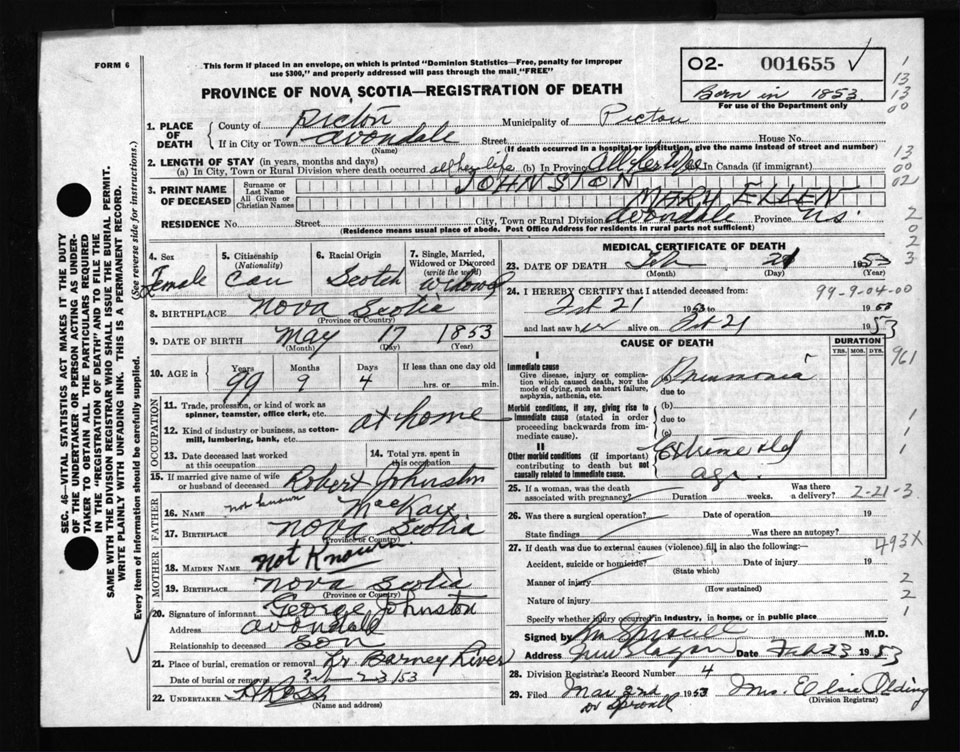 FORM 6
This form if placed in an envelope, on which is printed "Dominion Statistics—Free, penalty for improper
use $300," and properly addressed will pass through the mail "FREE"
O2- 001655 ✓
Born in 1853
For use of the Department only
PROVINCE OF NOVA SCOTIA—REGISTRATION OF DEATH
1. PLACE OF DEATH
County of Pictou Municipality of Pictou
If in City or Town Avondale Street House No.
(Name) (If death occurred in a hospital or institution, give name instead of street and number)
2. LENGTH OF STAY (in years, months and days)
(a) In City, Town or Rural Division where death occurred all her life (b) In Province All her life In Canada (if immigrant)
3. PRINT NAME OF DECEASED
Surname or Last Name JOHNSTON
All Given or Christian Names MARY ELLEN
RESIDENCE No. Street City, Town or Rural Division Avondale Province N.S.
(Residence means usual place of abode. Post Office Address for residents in rural parts not sufficient)
4. Sex Female
5. Citizenship (Nationality) Can
6. Racial Origin Scotch
7. Single, Married, Widowed or Divorced (write the word) Widowed
8. BIRTHPLACE Nova Scotia
(Province or Country)
9. DATE OF BIRTH May 17 1853
(Month) (Day) (Year)
10. AGE in Years 99 Months 9 Days 4 If less than one day
hrs. or min.
OCCUPATION
11. Trade, profession, or kind of work as spinner, teamster, office clerk, etc.
at home
12. Kind of industry or business, as cotton-mill, lumbering, bank, etc.
13. Date deceased last worked at this occupation
14. Total yrs. spent in this occupation
15. If married give name of wife or husband of deceased Robert Johnston
FATHER
16. Name not known MacKay
17. BIRTHPLACE Nova Scotia
(Province or Country)
MOTHER
18. MAIDEN NAME Not Known
19. BIRTHPLACE Nova Scotia
(Province or Country)
20. Signature of informant George Johnston
Address Avondale
Relationship to deceased Son
21. Place of burial, cremation or removal Barney River
Date of burial or removal 23/53
22. UNDERTAKER
(Name and address)
MEDICAL CERTIFICATE OF DEATH
23. DATE OF DEATH Feb 21 1953
(Month) (Day) (Year)
24. I HEREBY CERTIFY that I attended deceased from: 99-9-04-00
Feb 21 1953 1953
and last saw her alive on Feb 21 1953
CAUSE OF DEATH
DURATION
YRS. MOS. DYS.
I
Immediate cause
Give disease, injury or complication which caused death, not the mode of dying, such as heart failure, asphyxia, asthenia, etc.
Pneumonia
due to
Morbid conditions, if any, giving rise to immediate cause (stated in order proceeding backwards from immediate cause).
(b)
due to
(c)
II
Other morbid conditions (if important) contributing to death but not causally related to immediate cause.
Extreme old
age
25. If a woman, was the death associated with pregnancy? Duration weeks. Was there a delivery? 2-21-3
26. Was there a surgical operation? Date of operation 19
State findings Was there an autopsy?
493X
27. If death was due to external causes (violence) fill in also the following:—
Accident, suicide or homicide? Date of injury 19
(State which)
Manner of injury
(How sustained)
Nature of injury
Specify whether injury occurred in industry, in home, or in public place
Signed by M.D.
Address New Glasgow Date Feb 23 1953
28. Division Registrar's Record Number 4
29. Filed Mar 2nd 1953 Mrs. Elsie Olding
Dr Sproull (Division Registrar)
SEC. 46—VITAL STATISTICS ACT MAKES IT THE DUTY
OF THE UNDERTAKER OR PERSON ACTING AS UNDER-
TAKER TO OBTAIN ALL THE PARTICULARS REQUIRED
IN THE "REGISTRATION OF DEATH" AND TO FILE THE
SAME WITH THE DIVISION REGISTRAR WHO SHALL ISSUE THE BURIAL PERMIT.
WRITE PLAINLY WITH UNFADING INK. THIS IS A PERMANENT RECORD.
Every item of information should be carefully supplied. (See reverse side for instructions.)
1
13
13
00
13
00
02
2
0
2
3
961
1
1
1
2
2
1